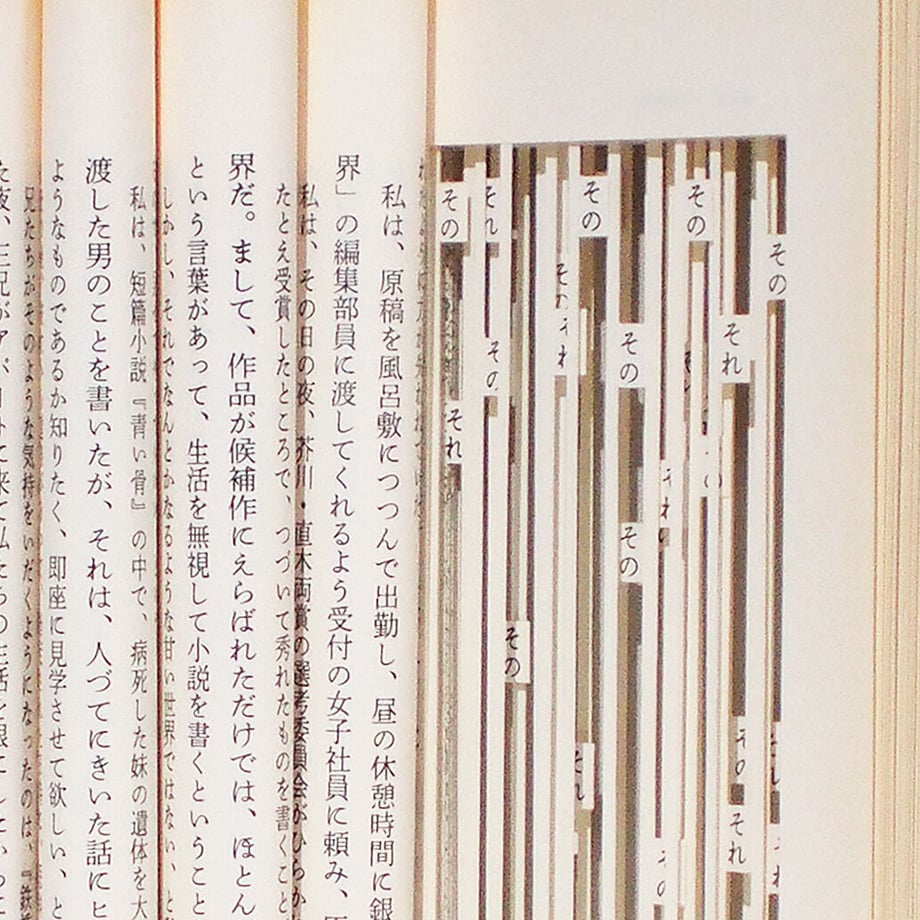 その
それ
それ
その
その
その
その
その
それ
その
それ
その
その
それ
私は、原稿を風呂敷につつんで出勤し、昼の休憩時間に銀
界」の編集部員に渡してくれるよう受付の女子社員に頼み、
私は、その日の夜、芥川・直木両賞の選考委員会がひらか
たとえ受賞したところで、つづいて秀れたものを書くこと
界だ。まして、作品が候補作にえらばれただけでは、ほとん
という言葉があって、生活を無視して小説を書くということ
しかし、それでなんとかなるような甘い世界ではない、と
私は、短篇小説『青い骨』の中で、病死した妹の遺体を大
渡した男のことを書いたが、それは、人づてにきいた話にヒ
ようなものであるか知りたく、即座に見学させて欲しい、と
兄たちがそのような気持をいだくようになったのは、『鉄